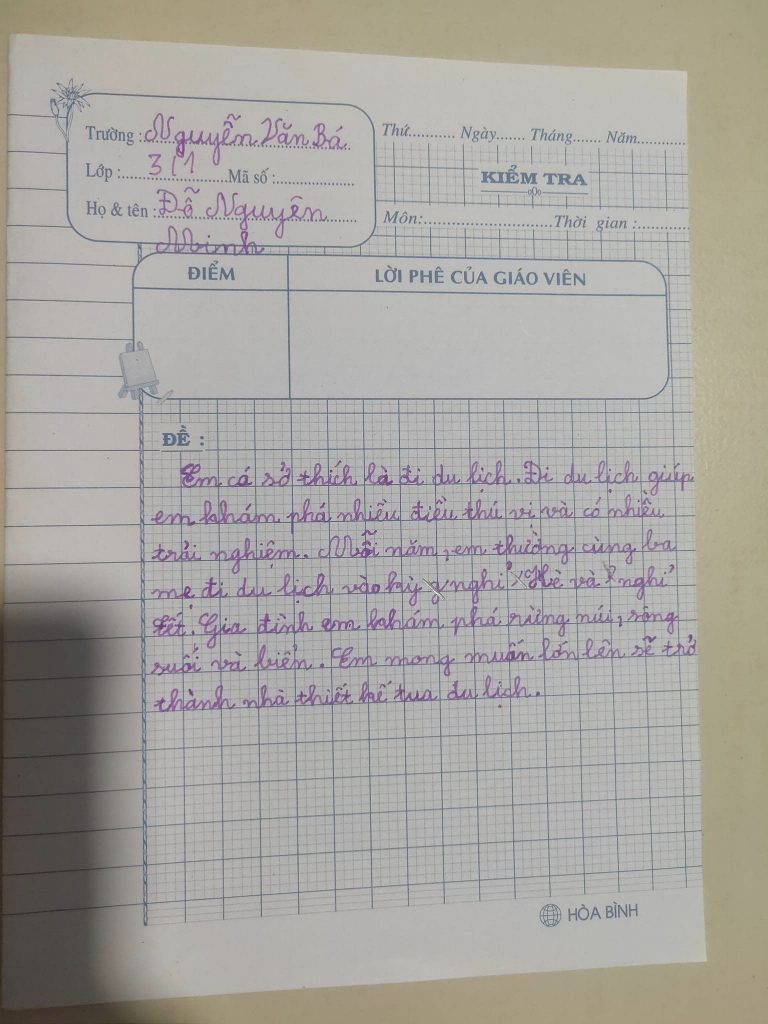 Trường : Nguyễn Văn Bá
Lớp : 3/1 Mã số :
Họ & tên : Đỗ Nguyên
Minh
Thứ........... Ngày....... Tháng....... Năm............
KIỂM TRA
Môn:............................Thời gian :............
ĐIỂM
LỜI PHÊ CỦA GIÁO VIÊN
ĐỀ :
Em có sở thích là đi du lịch. Đi du lịch giúp
em khám phá nhiều điều thú vị và có nhiều
trải nghiệm. Mỗi năm, em thường cùng ba
mẹ đi du lịch vào kỳ nghỉ Hè và nghỉ
tết. Gia đình em khám phá rừng núi, sông
suối và biển. Em mong muốn lớn lên sẽ trở
thành nhà thiết kế tua du lịch.
HÒA BÌNH